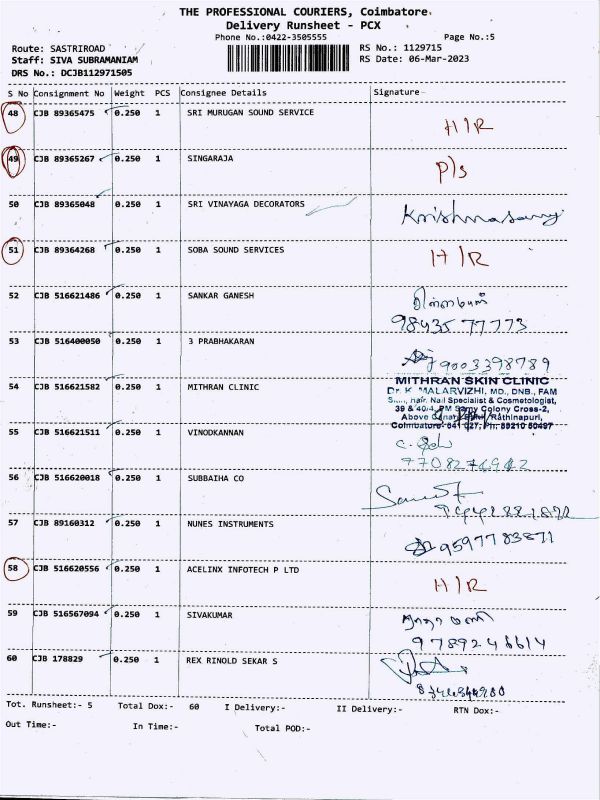 THE PROFESSIONAL COURIERS, Coimbatore.
Delivery Runsheet - PCX
Phone No.:0422-3505555
Page No.:5
Route: SASTRIROAD
RS No.: 1129715
Staff: SIVA SUBRAMANIAM
RS Date: 06-Mar-2023
DRS No.: DCJB112971505
S No Consignment No Weight PCS Consignee Details Signature
48 CJB 89365475 0.250 1 SRI MURUGAN SOUND SERVICE H/R
49 CJB 89365267 0.250 1 SINGARAJA P/s
50 CJB 89365048 0.250 1 SRI VINAYAGA DECORATORS Krishnasamy
51 CJB 89364268 0.250 1 SOBA SOUND SERVICES H/R
52 CJB 516621486 0.250 1 SANKAR GANESH
98435 77773
53 CJB 516400050 0.250 1 3 PRABHAKARAN
9003398789
54 CJB 516621582 0.250 1 MITHRAN CLINIC MITHRAN SKIN CLINIC
Dr. K. MALARVIZHI, MD., DNB., FAM
Skin, Hair, Nail Specialist & Cosmetologist,
39 & 40/4, PM Samy Colony Cross-2,
Rathinapuri,
Coimbatore-641 027, Ph: 89210 50497
55 CJB 516621511 0.250 1 VINODKANNAN
56 CJB 516620018 0.250 1 SUBBAIHA CO
57 CJB 89160312 0.250 1 NUNES INSTRUMENTS
9597783871
58 CJB 516620556 0.250 1 ACELINX INFOTECH P LTD H/R
59 CJB 516567094 0.250 1 SIVAKUMAR
9789246614
60 CJB 178829 0.250 1 REX RINOLD SEKAR S
Tot. Runsheet:- 5 Total Dox:- 60 I Delivery:- II Delivery:- RTN Dox:-
Out Time:- In Time:- Total POD:-